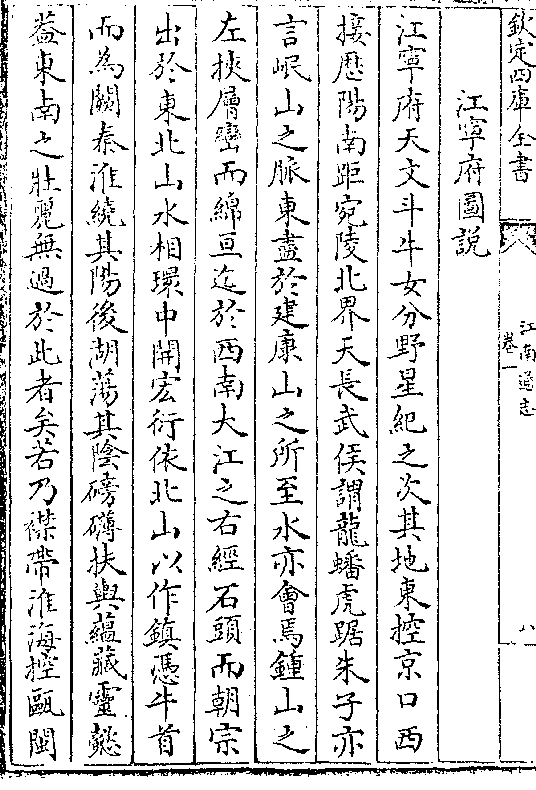 欽定四庫全書
江南通志
卷一
八
江寧府圖説
江寧府天文斗牛女分野星紀之次其地東控京口西
接歴陽南距宛陵北界天長武侯謂龍蟠虎踞朱子亦
言岷山之脈東盡於建康山之所至水亦會焉鍾山之
左挾層巒而綿亘迄於西南大江之右經石頭而朝宗
出於東北山水相環中開宏衍依北山以作鎮憑牛首
而為闕秦淮繞其陽後湖蕩其陰磅礴扶輿蘊藏靈懿
葢東南之壯麗無過於此者矣若乃襟帶淮海控甌閩